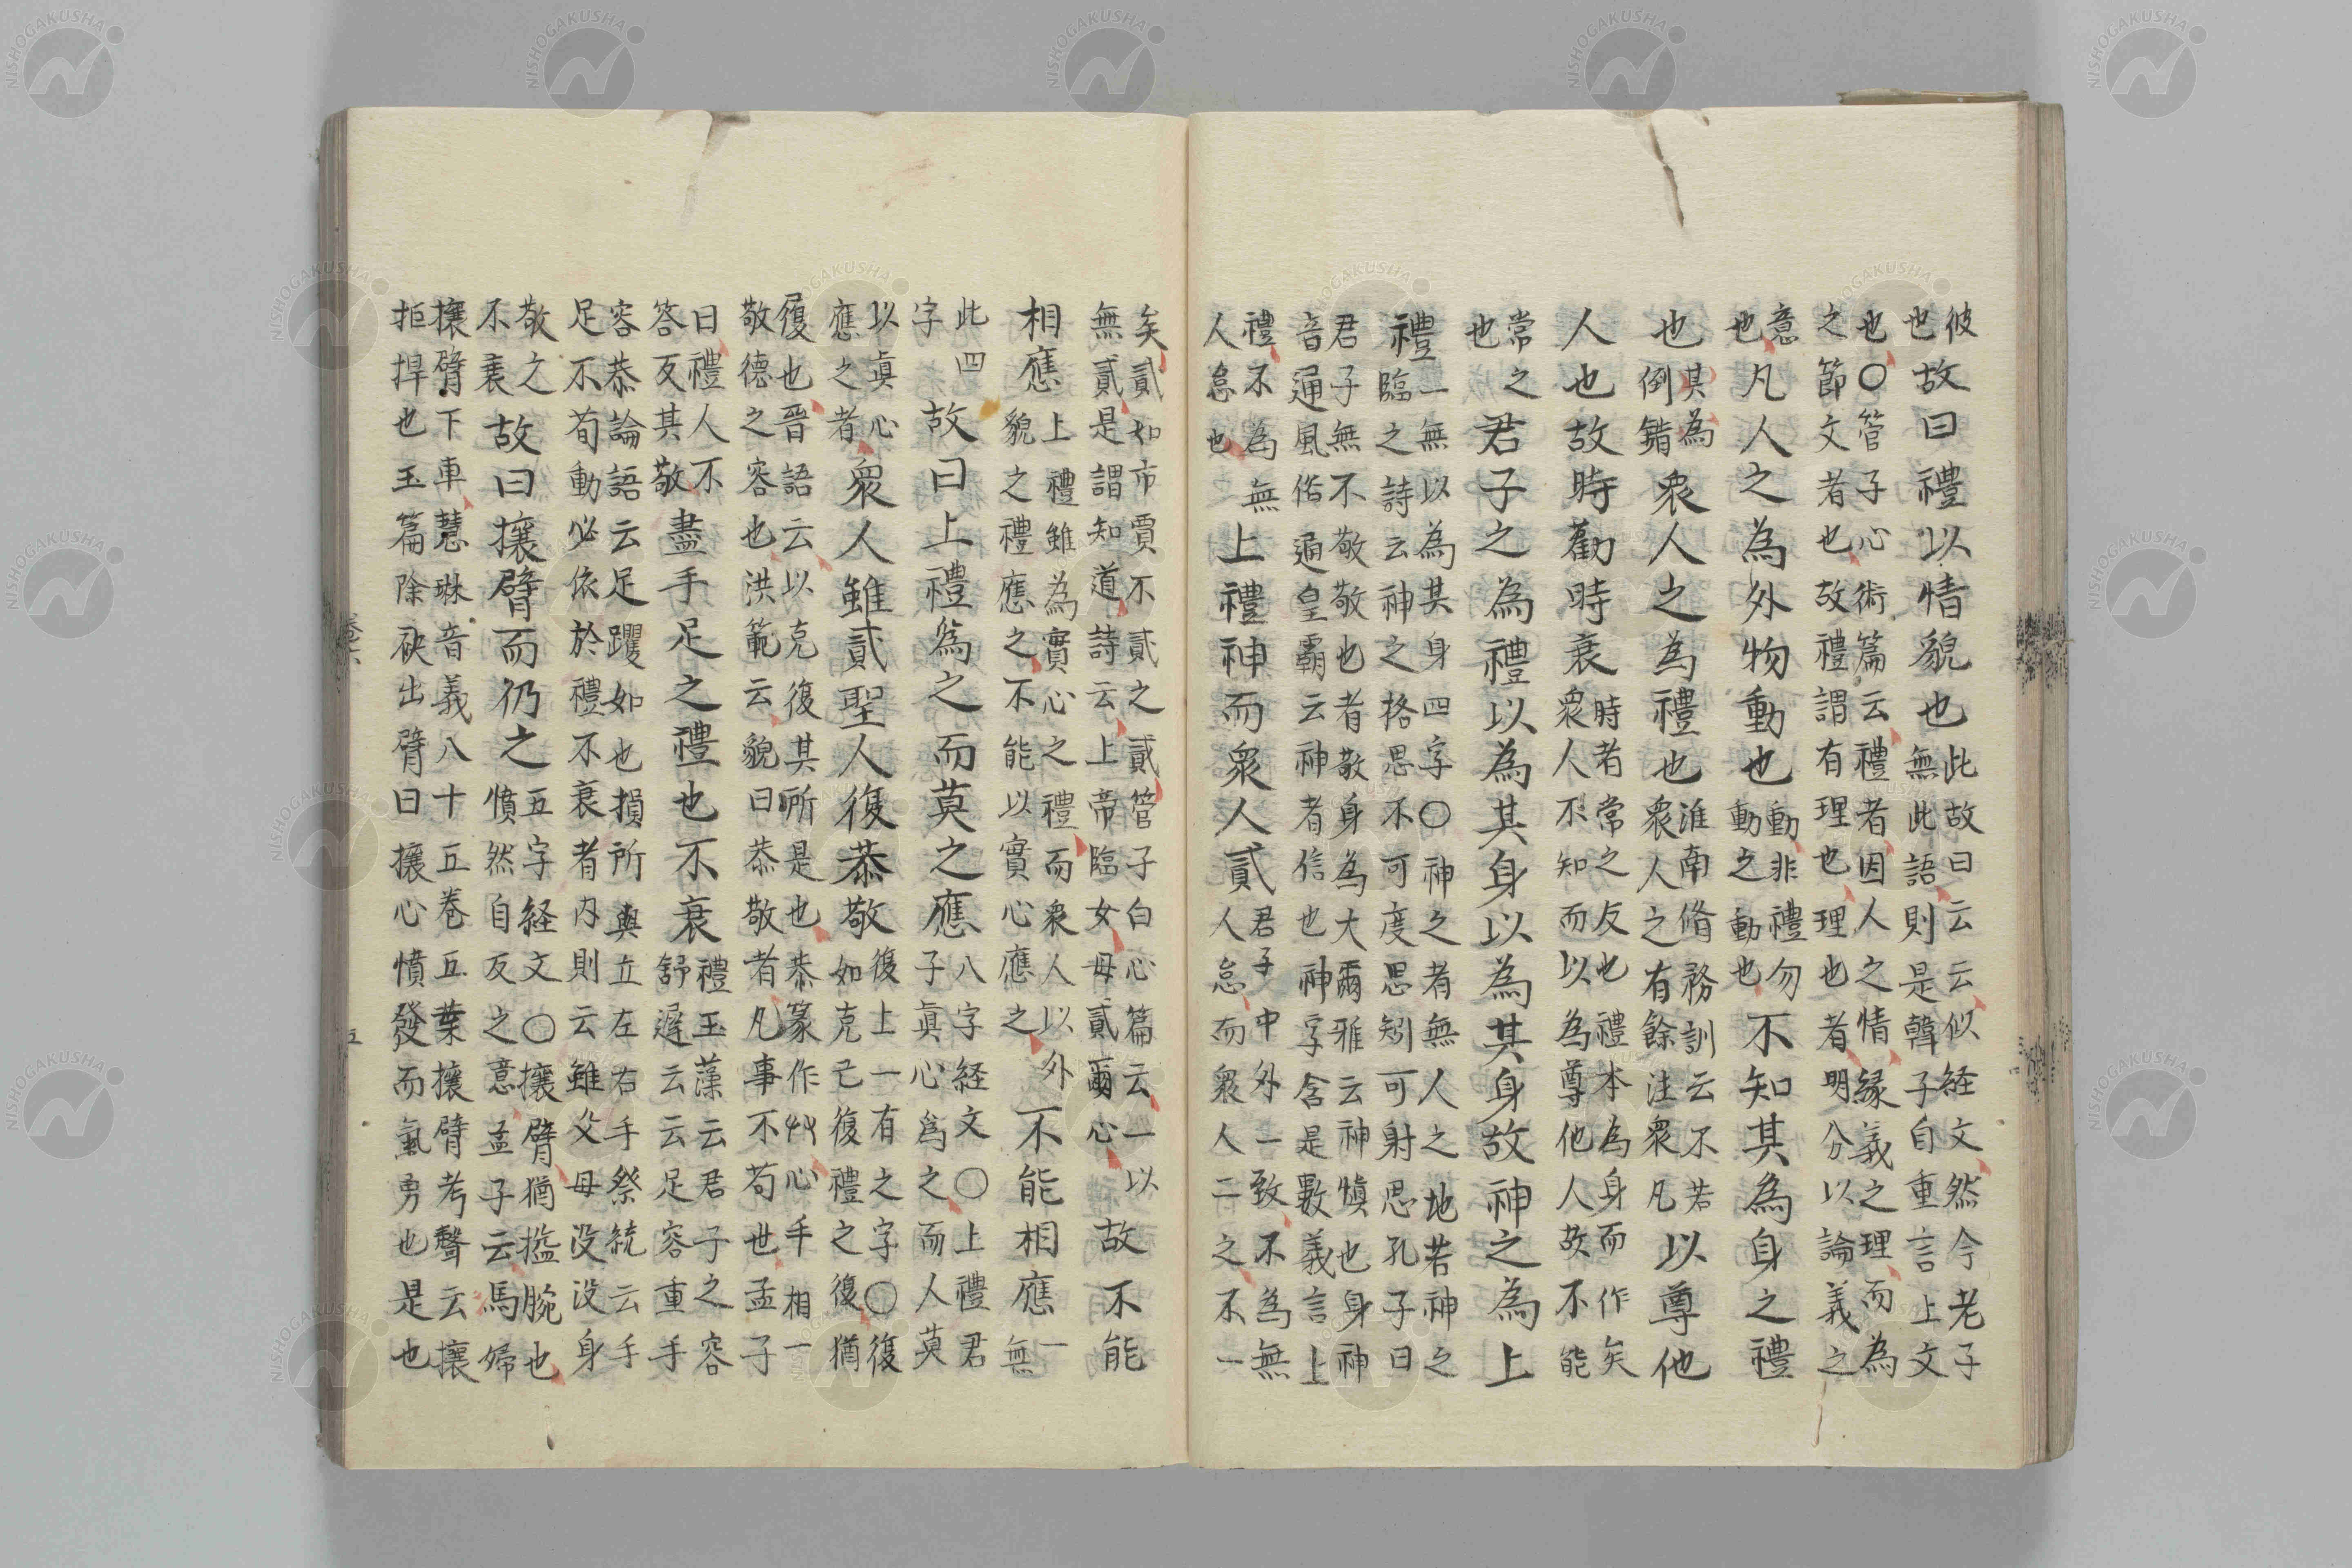 彼也故曰禮以情貌也此故曰云云似経文然今老子無此語則是韓子自重言上文
也〇管子心術篇云禮者因人之情縁義之理而為
之節文者也故禮謂有理也理也者明分以論義之
意也凡人之為外物動也動非禮勿動之動也不知其為身之禮
也其為倒錯衆人之為禮也淮南脩務訓云不若衆人之有餘注衆凡以尊他
人也故時勸時衰時者常之反也禮本為身而作矣衆人不知而以為尊他人故不能
常之也君子之為禮以為其身以為其身故神之為上
禮一無以為其身四字〇神之者無人之地若神之臨之詩云神之格思不可度思矧可射思孔子曰
君子無不敬敬也者敬身為大爾雅云神慎也身神
音通風俗通皇霸云神者信也神字含是數義言上
禮不為無人怠也上禮神而衆人貳君子中外一致不為無人怠而衆人二之不一
矣貳如市賈不貳之貳管子白心篇云一以無貳是謂知道詩云上帝臨女母貳爾心故不能
相應上禮雖為實心之禮而衆人以外貌之禮應之不能以實心應之不能相應一無
此四字故曰上禮為之而莫之應八字経文〇上禮君子眞心為之而人莫
以眞心應之者衆人雖貳聖人復恭敬復上一有之字〇復如克己復禮之復猶
履也晉語云以克復其所是也恭篆作心手相一
敬德之容也洪範云貌曰恭敬者凡事不苟世孟子
曰禮人不答反其敬盡手足之禮也不衰禮玉藻云君子之容舒遲云云足容重手
容恭論語云足躩如也損所與立左右手祭統云手
足不苟動必依於禮不衰者内則云雖父母没没身
敬之不衰故曰攘臂而仍之五字経文〇攘臂猶搤腕也憤然自反之意孟子云馮婦
攘臂下車慧琳音義八十五巻五葉攘臂考聲云攘
拒捍也玉篇除袂出臂曰攘心憤發而氣勇也是也